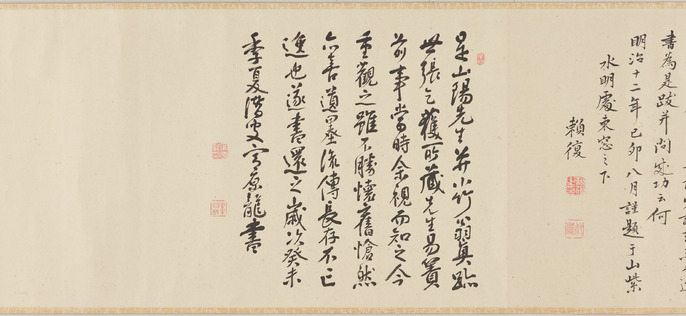 書為是跋并問 功云何
明治十二年己卯八月謹題于山紫
水明處東窓之下
賴復
是山陽先生并小竹翁真跡
張 獲所藏先生易簀
前事當時余視而知之今
重觀之雖不勝懷舊愴然
亦喜遺墨流傳長存不亡
逸也遂書還之歲次癸未
季夏潜叟宮原龍書